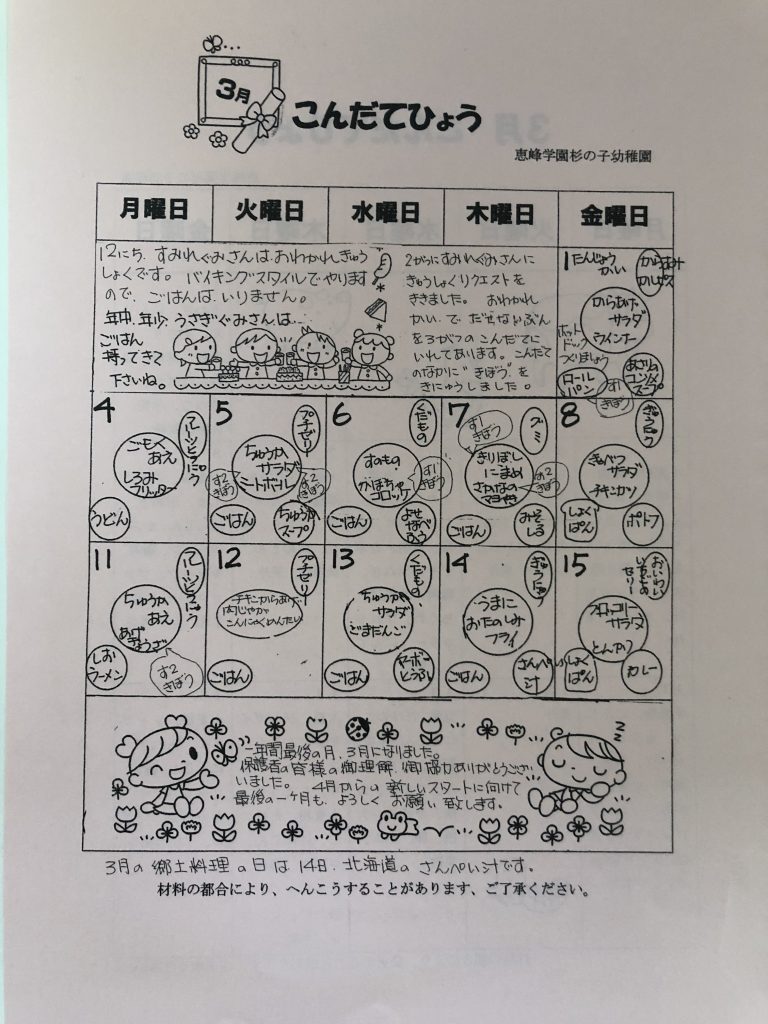 3月
こんだてひょう
恵峰学園杉の子幼稚園
月曜日 火曜日 水曜日 木曜日 金曜日
12にち、すみれぐみさんは、おわかれきゅう
しょくです。バイキングスタイルでやります
ので、ごはんは、いりません。
年中、年少、うさぎぐみさんは、
ごはん
持ってきて
下さいね。
2がつにすみれぐみさんに
きゅうしょくリクエストを
ききました。おわかれ
かいでだせないぶん
を3がつのこんだてに
いれてあります。こんだて
のなかに"きぼう"を
きにゅうしました。
1 たんじょう
かい
からあげ
サラダ
ウインナー
ホット
ドッグ
つくりましょう
ロール
パン
あさりム
コンソメ
スープ
す1
きぼう
4
フルーツヒアにゅう
ごもく
あえ
しろみ
フリッター
うどん
5
プチゼリー
ちゅうか
サラダ
ミートボール
す2
きぼう
す2
きぼう
ごはん
ちゅうか
スープ
6
くだもの
すのもの
かぼちゃ
コロッケ
す1
きぼう
ごはん
よせ
なべ
ふう
7
す1
きぼう
きりぼし
にまめ
さかなの
マヨやき
す2
きぼう
ごはん
みそ
しる
8
ぎゅうにゅう
きゃべつ
サラダ
チキンカツ
しょく
ぱん
ポトフ
11
ちゅうか
あえ
あげ
ぎょうざ
しお
ラーメン
す2
きぼう
12
プチゼリー
チキンからあげ
肉じゃが
こんにゃくめんたい
ごはん
13
くだもの
ちゅうか
サラダ
ごまだんご
ごはん
マーボー
とうふ
14
ぎゅうにゅう
うまに
おたのしみ
フライ
ごはん
さんぺい
汁
15
おいわい
いちごの
ゼリー
ブロッコリー
サラダ
とんかつ
しょく
ぱん
カレー
一年間最後の月、3月になりました。
保護者の皆様の御理解、御協力ありがとうござ
いました。4月からの新しいスタートに向けて
最後の一ヶ月も、よろしくお願い致します。
3月の郷土料理の日は14日、北海道のさんぺい汁です。
材料の都合により、へんこうすることがあります、ご了承ください。